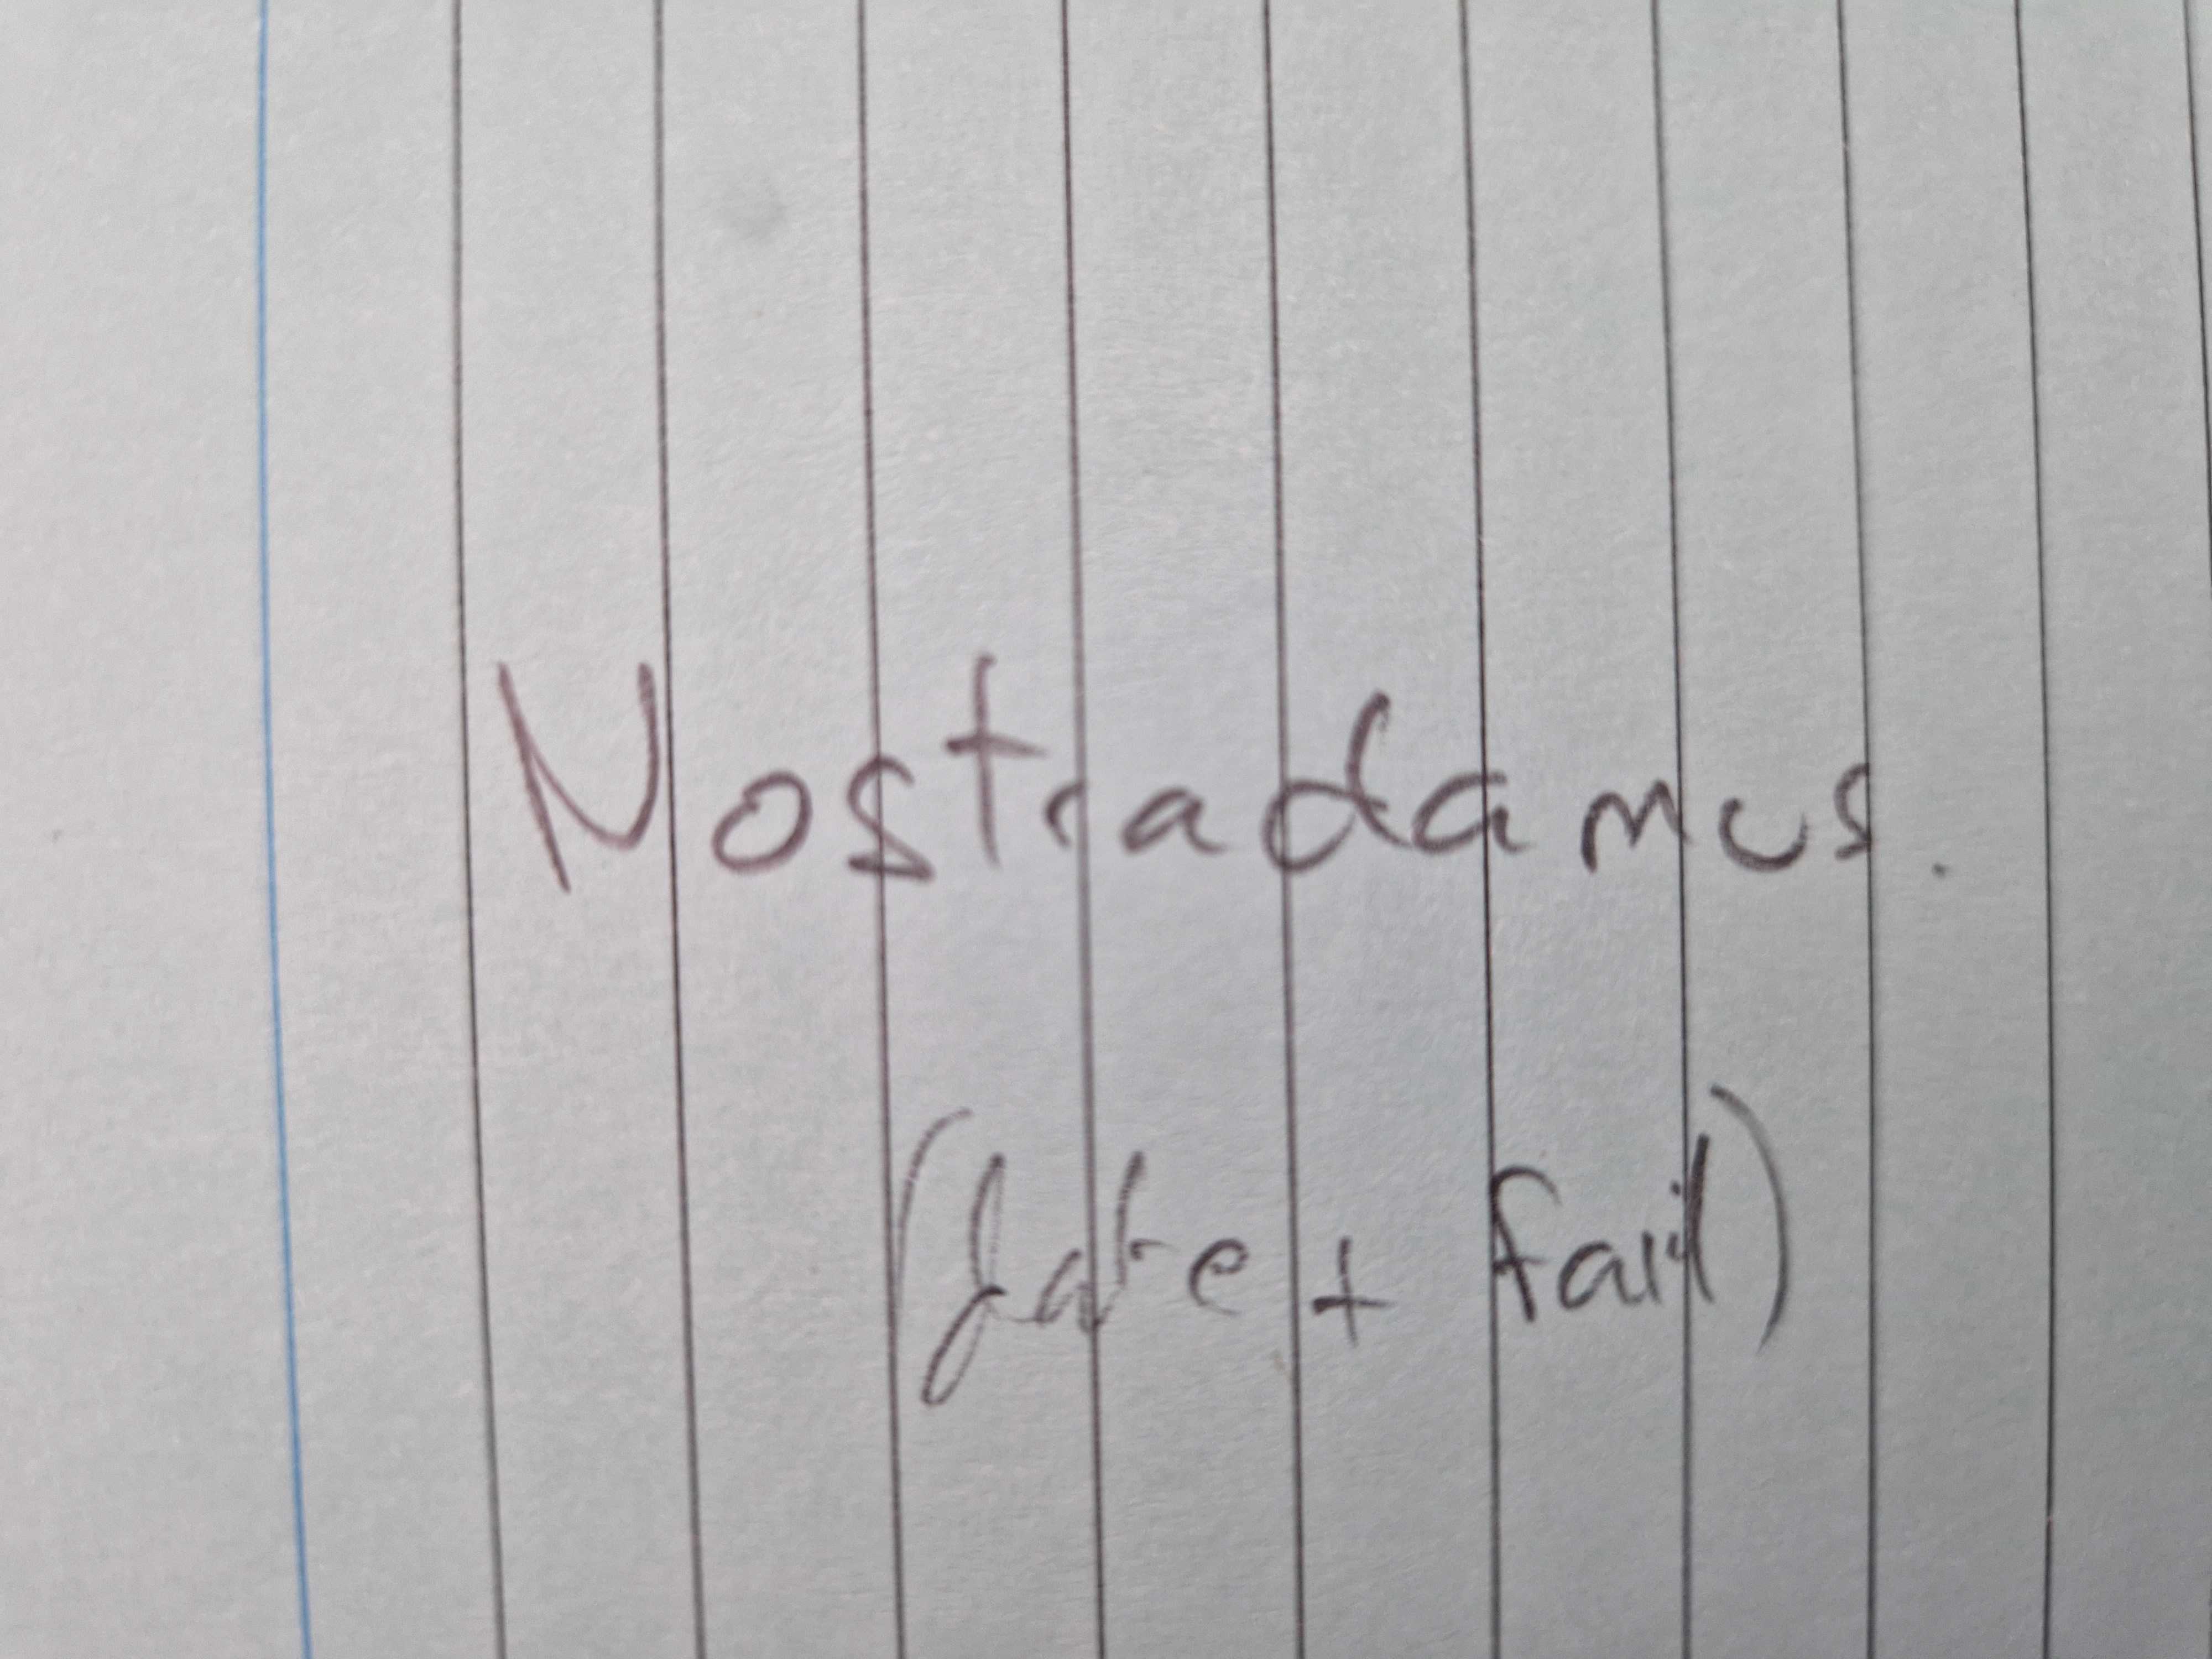 Nostradamus.
(fate + fail)